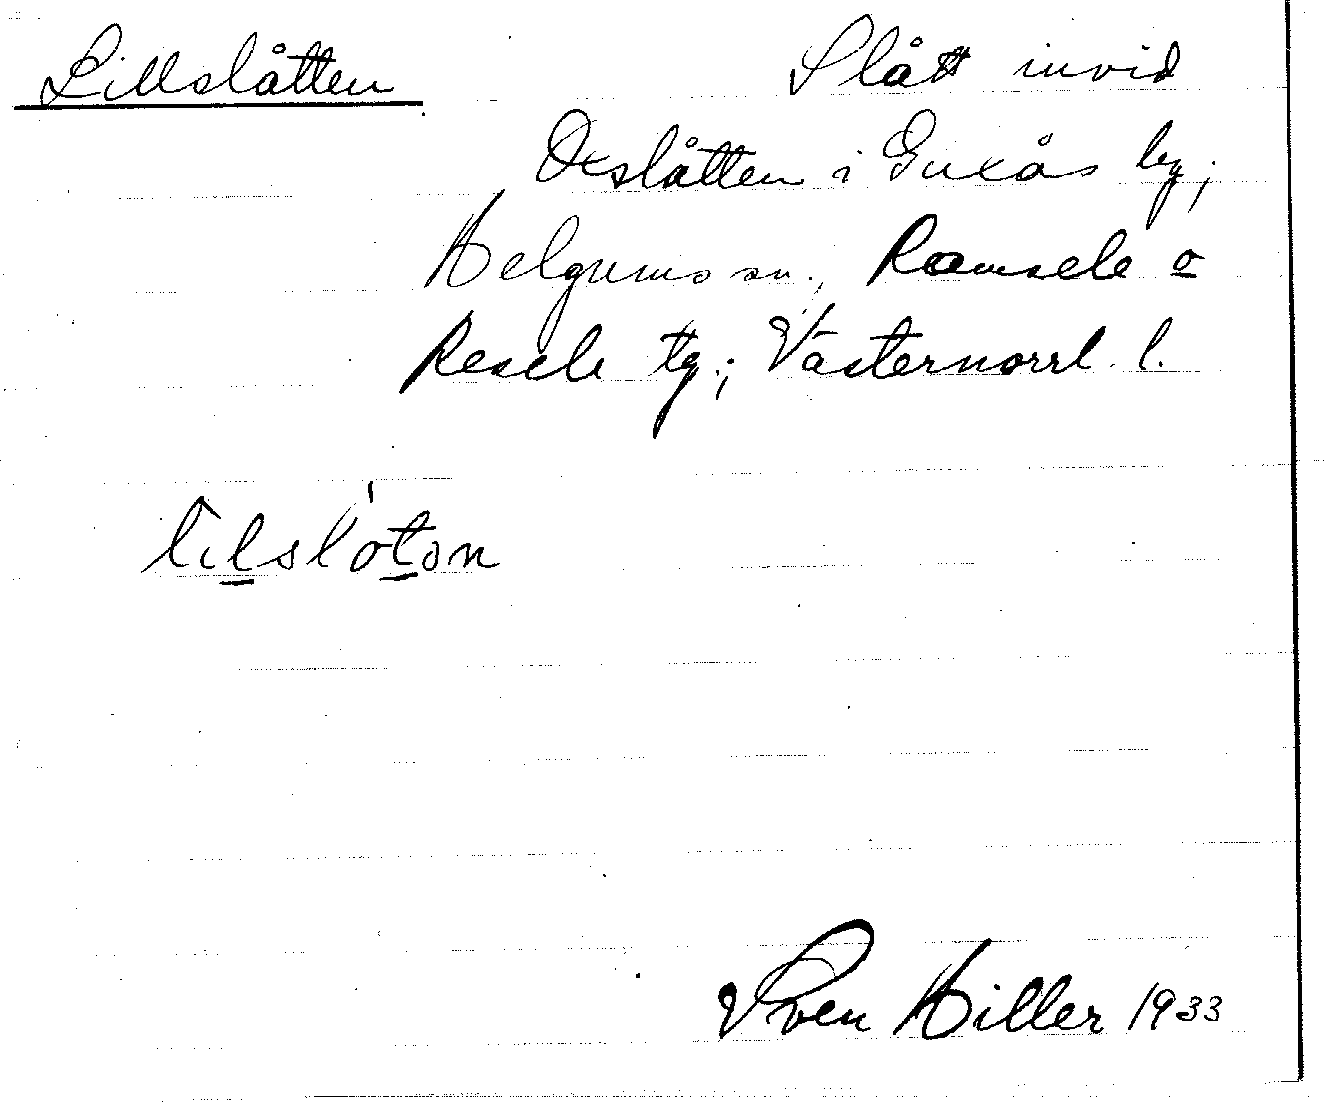 Lillslåtten
Slått invid
Oxslåtten i Guxås by;
Helgums sn., Ramsele o
Resele tg.; Västernorrl. l.
lilslotən
Sven Hiller 1933